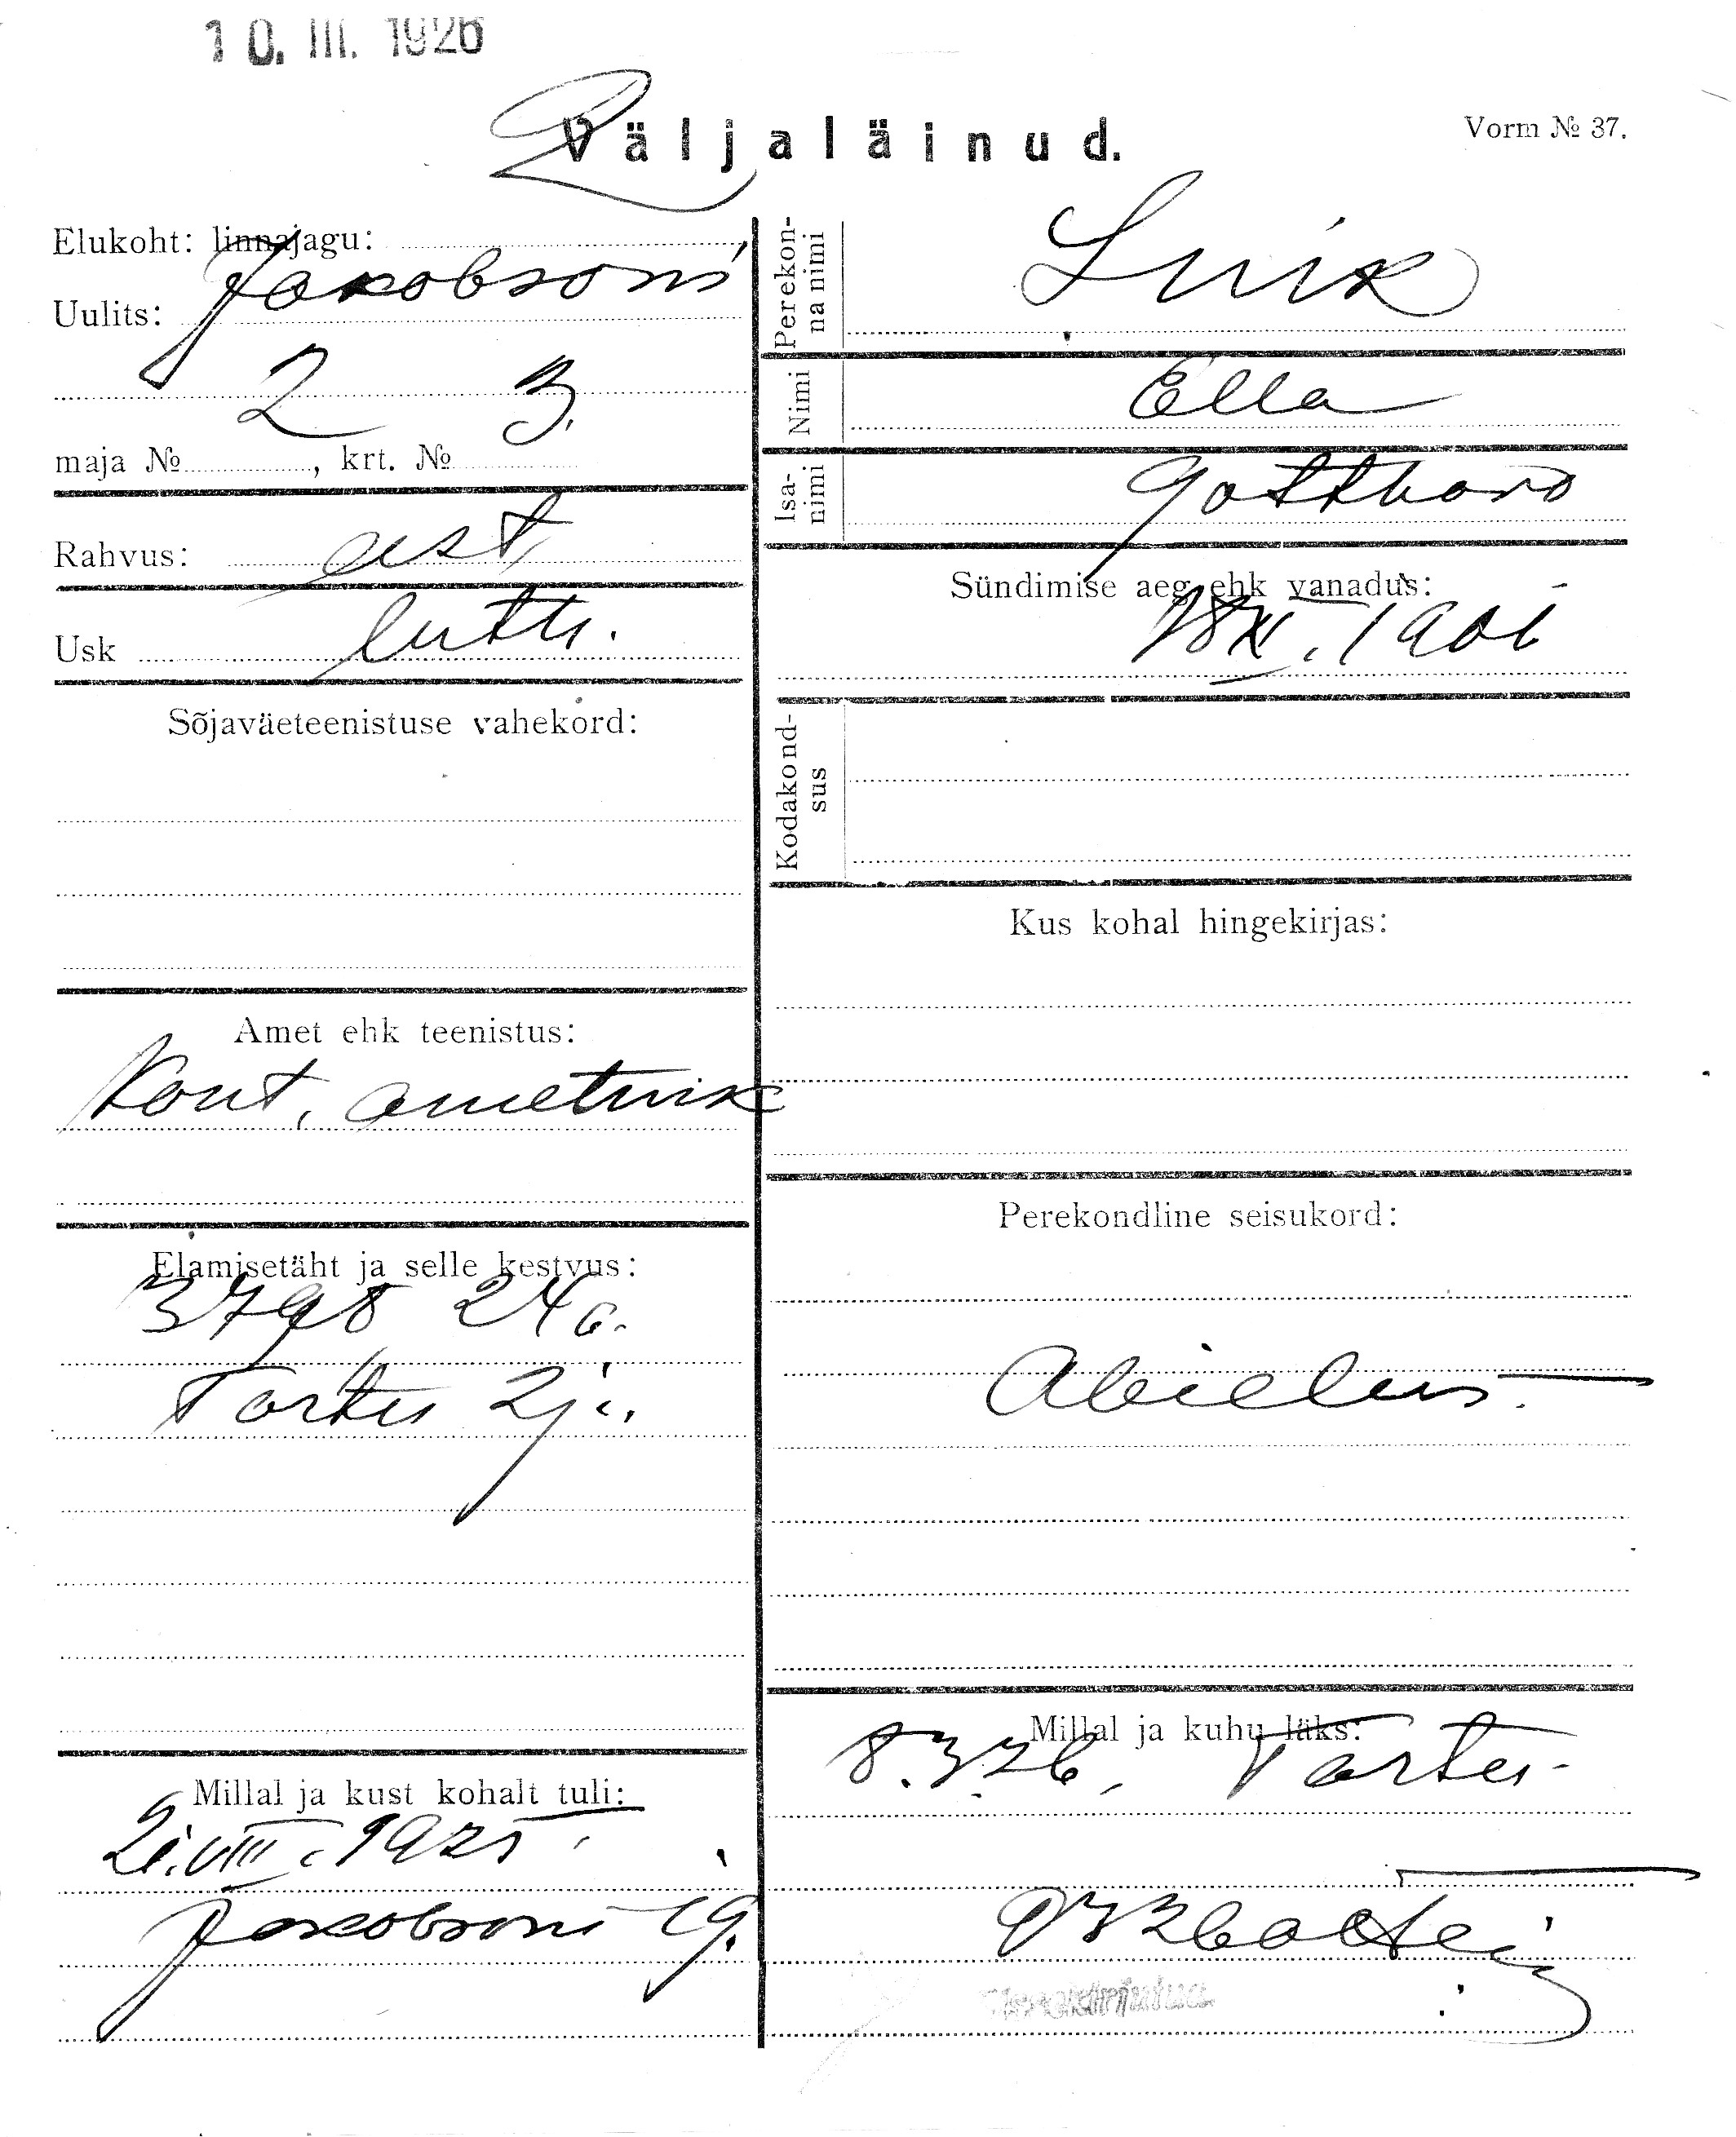 10. III. 1926
Väljaläinud.
Vorm № 37.
Elukoht: linnajagu:
Uulits: Jakobsoni
2 3.
maja № , krt. №
Rahvus: est,
Usk luth.
Sõjaväeteenistuse vahekord:
Amet ehk teenistus:
Kont. ametnik
Elamisetäht ja selle kestvus:
3798 24 a.
Tartu 2 j.
Millal ja kust kohalt tuli:
VIII. 1925.
Jakobsoni 19.
Perekonna nimi
Luik
Nimi
Ella
Isanimi
Gotthard
Sündimise aeg ehk vanadus:
XI. 1901
Kodakondsus
Kus kohal hingekirjas:
Perekondline seisukord:
Abielus.
Millal ja kuhu läks:
8.3 26. Tartu